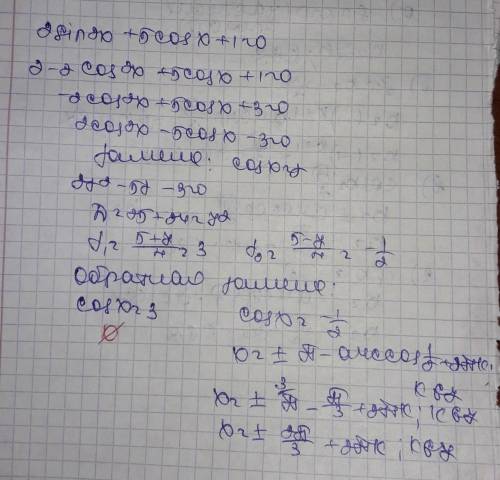 2sin²x + 5cosx + 1 = 0
2 - 2cos²x + 5cosx + 1 = 0
-2cos²x + 5cosx + 3 = 0
2cos²x - 5cosx - 3 = 0
Замена: cosx = y
2y² - 5y - 3 = 0
D = 25 + 24 = 7²
y₁ = (5+7)/4 = 3 y₂ = (5-7)/4 = -1/2
Обратная замена:
cosx = 3 cosx = -1/2
∅ x = ± π - arccos 1/2 + 2πk;
k∈Z
x = ± ³π - π/3 + 2πk; k∈Z
x = ± 2π/3 + 2πk; k∈Z